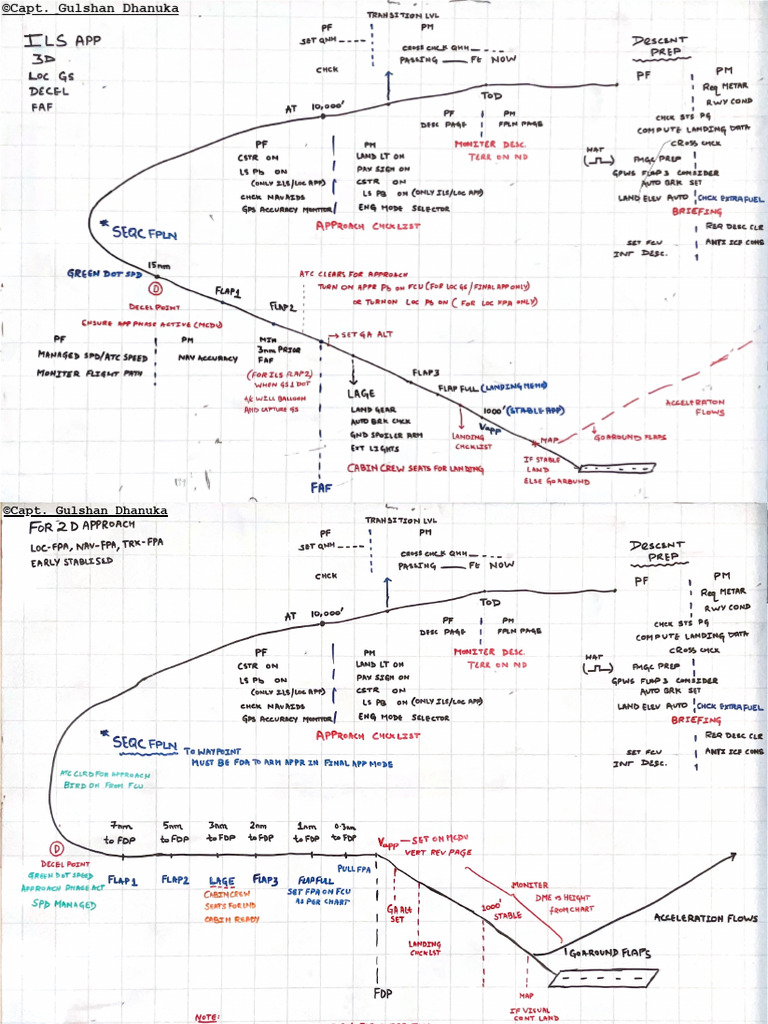 ©Capt. Gulshan Dhanuka
ILS APP
3D
LOC GS
DECEL
FAF
TRANSITION LVL
PF
PM
SET QNH ----
CROSS CHCK QNH ----
PASSING ___ Ft NOW
CHCK
DESCENT
PREP
PF
PM
Req METAR
RWY COND
CHCK STS PG
COMPUTE LANDING DATA
CROSS CHCK
FMGC PREP
GPWS FLAP 3 CONSIDER
AUTO BRK SET
LAND ELEV AUTO
CHCK EXTRA FUEL
BRIEFING
REQ DESC CLR
SET FCU
ANTI ICE CON
INT DESC.
AT 10,000'
TOD
PF
PM
DESC PAGE
FPLN PAGE
MONITER DESC.
TERR ON ND
PF
PM
CSTR ON
LAND LT ON
LS Pb ON
PAX SIGN ON
(ONLY ILS/LOC APP)
CSTR ON
CHCK NAVAIDS
LS PB ON (ONLY ILS/LOC APP)
GPS ACCURACY MONITOR
ENG MODE SELECTOR
APPROACH CHCKLIST
* SEQC FPLN
GREEN DOT SPD
15nm
D
DECEL POINT
ENSURE APP PHASE ACTIVE (MCDU)
FLAP1
FLAP2
ATC CLEARS FOR APPROACH
TURN ON APPR Pb ON FCU (FOR LOC GS/FINAL APP ONLY)
OR TURN ON LOC Pb ON (FOR LOC FPA ONLY)
SET GA ALT
PF
PM
MANAGED SPD/ATC SPEED
NAV ACCURACY
MONITER FLIGHT PATH
MIN
3nm PRIOR
FAF
(FOR ILS FLAP2)
WHEN GS 1 DOT
A/C WILL BALLOON
AND CAPTURE GS
LAGE
LAND GEAR
AUTO BRK CHCK
GND SPOILER ARM
EXT LIGHTS
CABIN CREW SEATS FOR LANDING
FAF
FLAP3
FLAP FULL (LANDING MEMO)
1000' (STABLE APP)
Vapp
LANDING
CHCKLIST
MAP
IF STABLE
LAND
ELSE GO AROUND
GOAROUND FLAPS
ACCELERATON
FLOWS
©Capt. Gulshan Dhanuka
FOR 2D APPROACH
LOC-FPA, NAV-FPA, TRK-FPA
EARLY STABLISED
TRANSITION LVL
PF
PM
SET QNH ----
CROSS CHCK QNH ----
PASSING ___ Ft NOW
CHCK
DESCENT
PREP
PF
PM
Req METAR
RWY COND
CHCK STS PG
COMPUTE LANDING DATA
CROSS CHCK
FMGC PREP
GPWS FLAP 3 CONSIDER
AUTO BRK SET
LAND ELEV AUTO
CHCK EXTRA FUEL
BRIEFING
REQ DESC CLR
SET FCU
ANTI ICE CON
INT DESC.
AT 10,000'
TOD
PF
PM
DESC PAGE
FPLN PAGE
MONITER DESC.
TERR ON ND
PF
PM
CSTR ON
LAND LT ON
LS Pb ON
PAX SIGN ON
(ONLY ILS/LOC APP)
CSTR ON
CHCK NAVAIDS
LS PB ON (ONLY ILS/LOC APP)
GPS ACCURACY MONITOR
ENG MODE SELECTOR
APPROACH CHCKLIST
* SEQC FPLN TO WAYPOINT
MUST BE FDA TO ARM APPR IN FINAL APP MODE
ATC CLRD FOR APPROACH
BIRD ON FROM FCU
7nm
to FDP
5nm
to FDP
3nm
to FDP
2nm
to FDP
1nm
to FDP
0.3nm
to FDP
D
DECEL POINT
GREEN DOT SPEED
APPROACH PHASE ACT
SPD MANAGED
FLAP1
FLAP2
LAGE
CABIN CREW
SEATS FOR LND
CABIN READY
FLAP3
FLAP FULL
SET FPA ON FCU
AS PER CHART
PULL FPA
Vapp — SET ON MCDU
VERT REV PAGE
GA Alt
SET
LANDING
CHCKLST
1000'
STABLE
MONITER
DME vs HEIGHT
FROM CHART
ACCELERATION FLOWS
GOAROUND FLAPS
FDP
MAP
IF VISUAL
CONT LAND
NOTE: